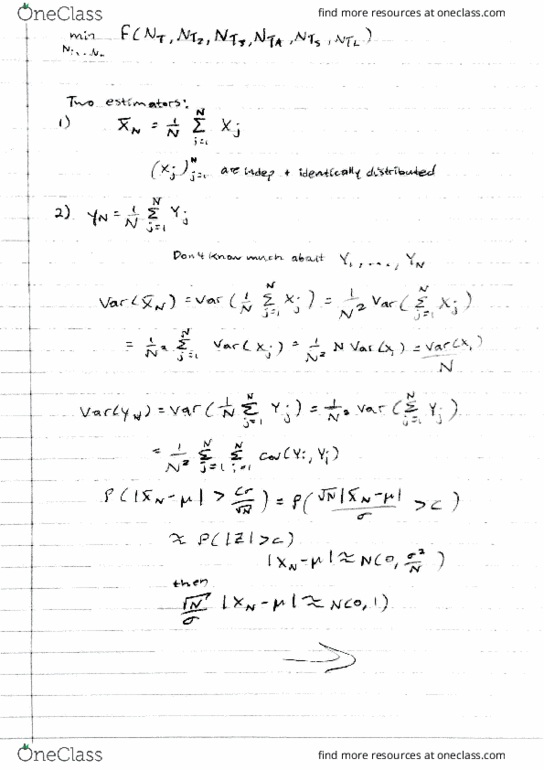 OneClass find more resources at oneclass.com
min F(N_T, N_T2, N_T3, N_TA, N_T5, N_TL)
N1,...N
Two estimators:
1) X̄_N = 1/N Σ_{j=1}^{N} X_j
(X_j)_{j=1}^{N} are indep + identically distributed
2) Y_N = 1/N Σ_{j=1}^{N} Y_j
Don't know much about Y_1, ..., Y_N
Var(X̄_N) = Var(1/N Σ_{j=1}^{N} X_j) = 1/N² Var(Σ_{j=1}^{N} X_j)
= 1/N² Σ_{j=1}^{N} Var(X_j) = 1/N² N Var(X_1) = Var(X_1)/N
Var(Y_N) = Var(1/N Σ_{j=1}^{N} Y_j) = 1/N² Var(Σ_{j=1}^{N} Y_j)
= 1/N² Σ_{j=1}^{N} Σ_{i=1}^{N} cov(Y_i, Y_j)
P(|X̄_N - μ| > cσ/√N) = P(√N|X̄_N - μ|/σ > c)
≈ P(|Z| > c)
|X_N - μ| ≈ N(0, σ²/N)
then
√N/σ |X_N - μ| ≈ N(0, 1)
OneClass find more resources at oneclass.com